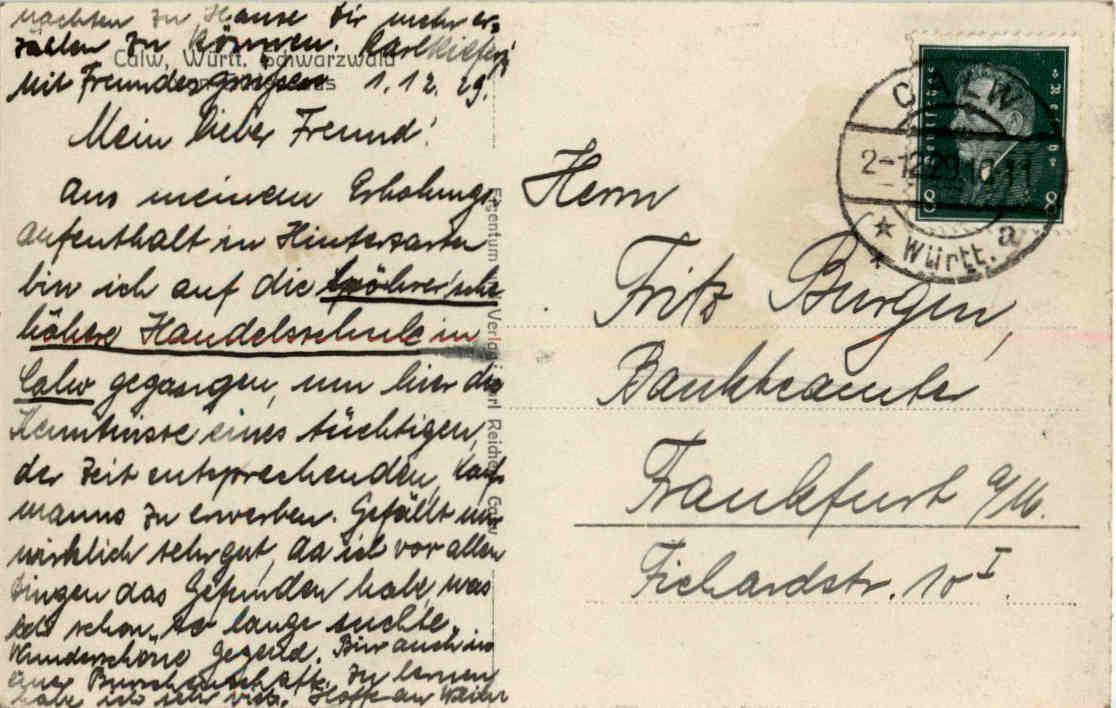 nachten zu Hause Dir mehr er-
zählen zu können.
Mit Freundesgrüßen 1.12.29.
Calw, Württ. Schwarzwald
Mein lieber Freund!
Aus meinem Erholungs-
aufenthalt in Hinterzarten
bin ich auf die Spöhrer'sche
höhere Handelsschule in
Calw gegangen, um hier die
Kenntnisse eines tüchtigen,
der Zeit entsprechenden, Kauf-
manns zu erwerben. Gefällt mir
wirklich sehr gut, da ich vor allen
Dingen das Gefunden habe, was
ich schon so lange suchte.
Wunderschöne Gegend. Bin auch in
einer Burschenschaft. Zu lernen
habe ich sehr viel. Hoffe an Weih-
Eigentum Verlag: Carl Reichert Calw
Herrn
Fritz Burgen,
Bankbeamter
Frankfurt a/M.
Fichardstr. 10 I
CALW
2-12 29.10-11
Württ. a
Deutsches Reich
8 8